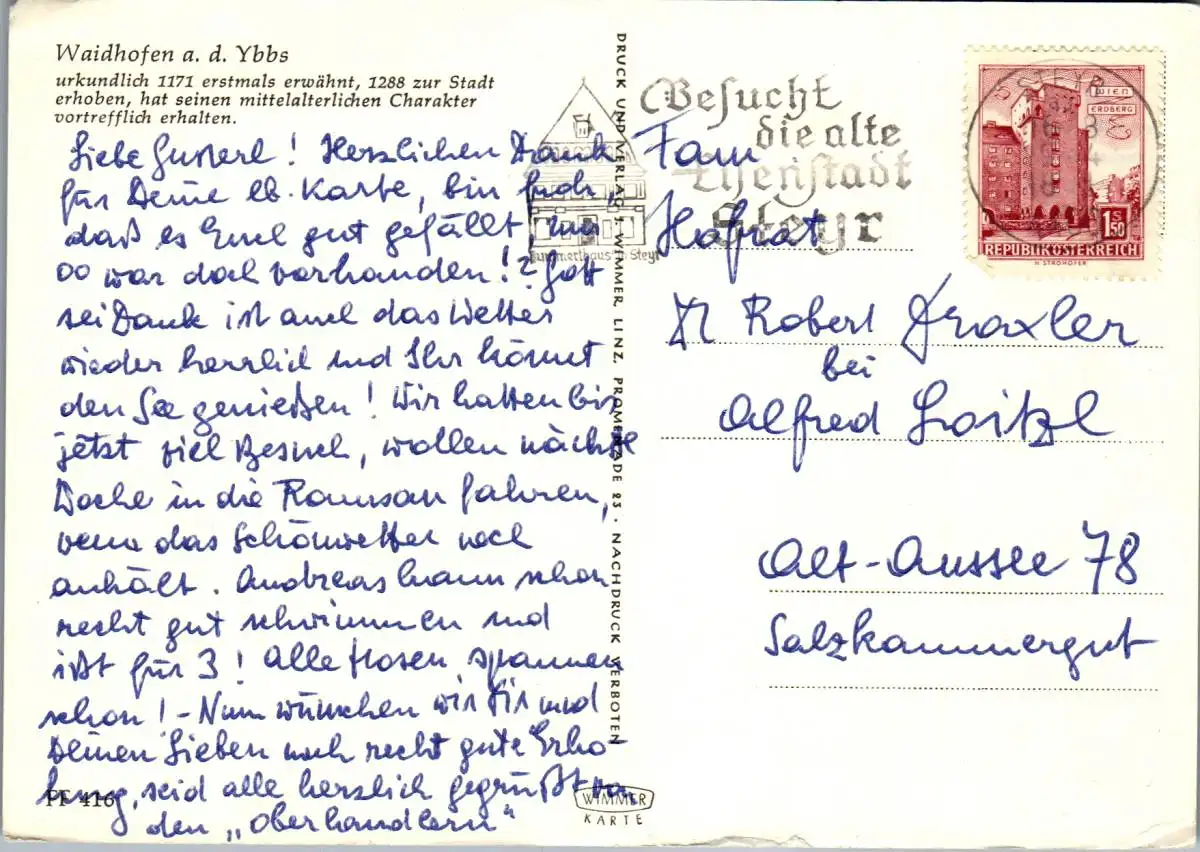 Waidhofen a. d. Ybbs
urkundlich 1171 erstmals erwähnt, 1288 zur Stadt
erhoben, hat seinen mittelalterlichen Charakter
vortrefflich erhalten.
Liebe Gusterl! Herzlichen Dank
für Deine lb. Karte, bin froh,
daß es Euch gut gefällt,
00 war doch vorhanden!? Gott
sei Dank ist auch das Wetter
wieder herrlich und Ihr könnt
den See genießen! Wir hatten bis
jetzt viel Besuch, wollen nächste
Woche in die Ramsau fahren,
wenn das Schönwetter noch
anhält. Andreas kann schon
recht gut schwimmen und
ißt für 3! Alle Hosen spannen
schon! - Nun wünschen wir Dir und
Deinen Lieben noch recht gute Erho-
lung, seid alle herzlich gegrüßt von
den „Oberhandlern"
PF 416
DRUCK UND VERLAG J. WIMMER, LINZ, PROMENADE 23 · NACHDRUCK VERBOTEN
WIMMER
KARTE
Besucht
die alte
Eisenstadt
Steyr
Bummerlhaus in Steyr
STEYR
WIEN
ERDBERG
S
1.50
REPUBLIK ÖSTERREICH
H. STROHOFER
Fam
Hofrat
Robert Draxler
bei
Alfred Loitzl
Alt-Aussee 78
Salzkammergut